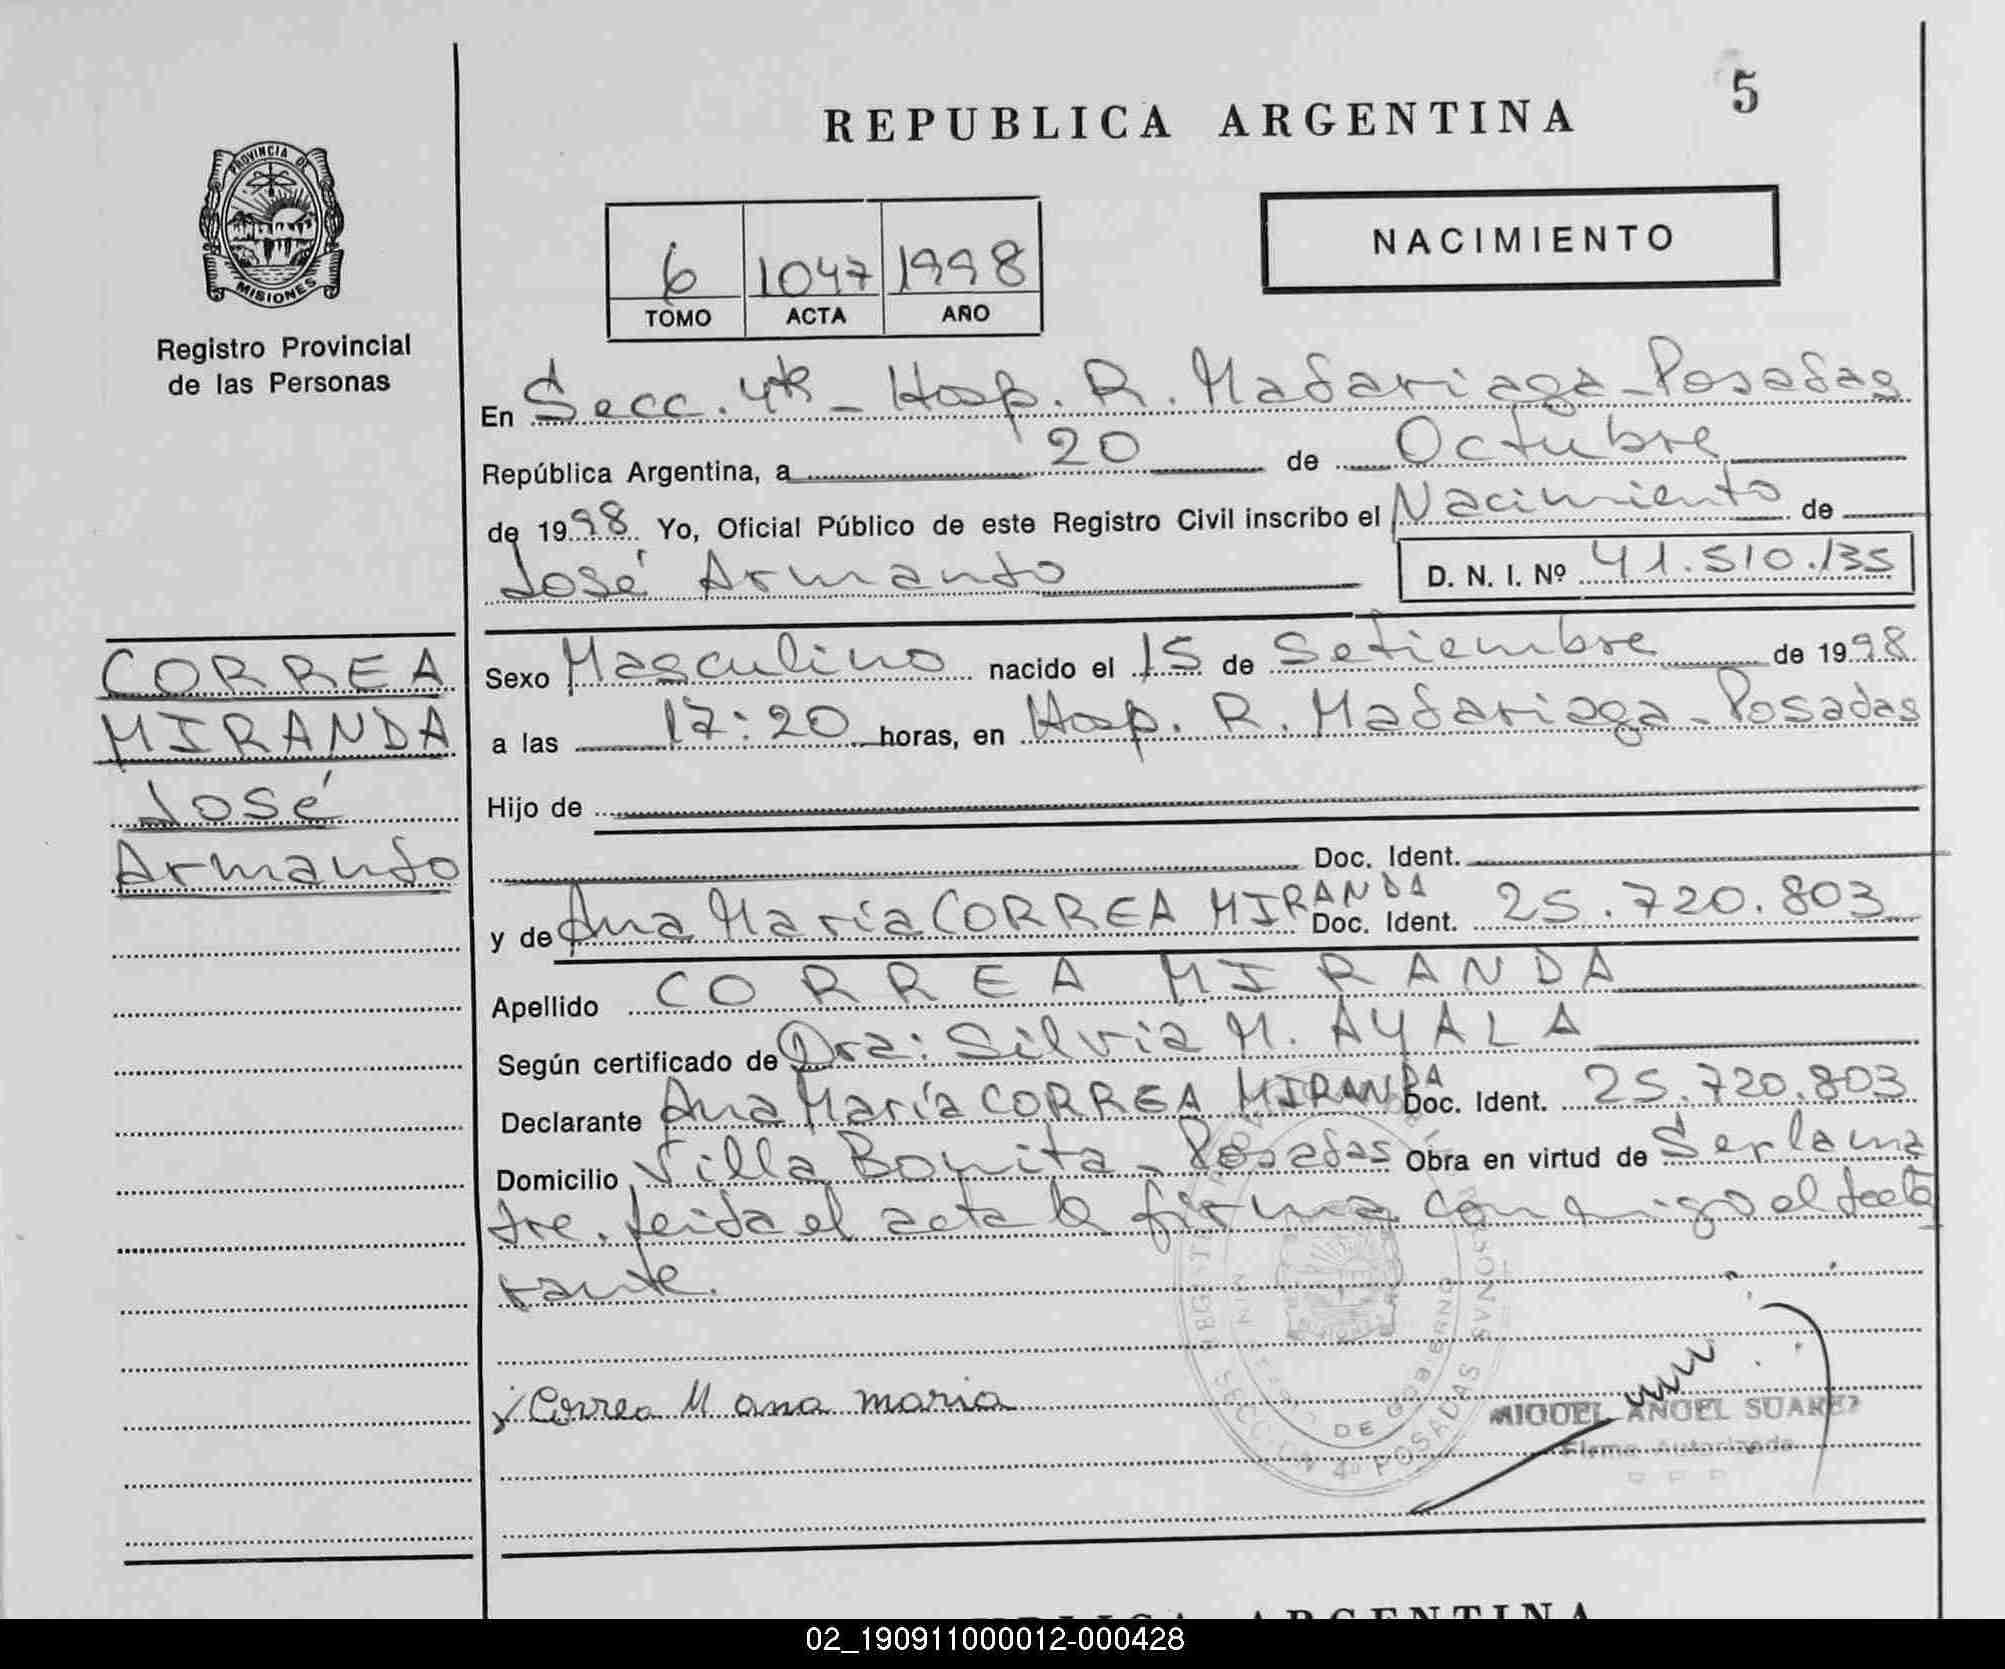 5
REPUBLICA ARGENTINA
PROVINCIA DE
MISIONES
Registro Provincial
de las Personas
NACIMIENTO
6 1047 1998
TOMO ACTA AÑO
En Secc. 4ta - Hosp. R. Madariaga - Posadas
República Argentina, a 20 de Octubre
de 1998 Yo, Oficial Público de este Registro Civil inscribo el Nacimiento de
José Armando D. N. I. Nº 41.510.135
CORREA
MIRANDA
José
Armando
Sexo Masculino nacido el 15 de Setiembre de 1998
a las 17:20 horas, en Hosp. R. Madariaga - Posadas
Hijo de
Doc. Ident.
y de Ana María CORREA MIRANDA Doc. Ident. 25.720.803
Apellido CORREA MIRANDA
Según certificado de Dra: Silvia M. AYALA
Declarante Ana María CORREA MIRANDA Doc. Ident. 25.720.803
Domicilio Villa Bonita - Posadas Obra en virtud de Ser la ma
dre. Leida el acta la firma conmigo el decla
rante.
Correa M ana maria
DE GOBIERNO
SECCION 4ª POSADAS
MIGUEL ANGEL SUAREZ
Firma Autorizada
REPUBLICA ARGENTINA
02_190911000012-000428